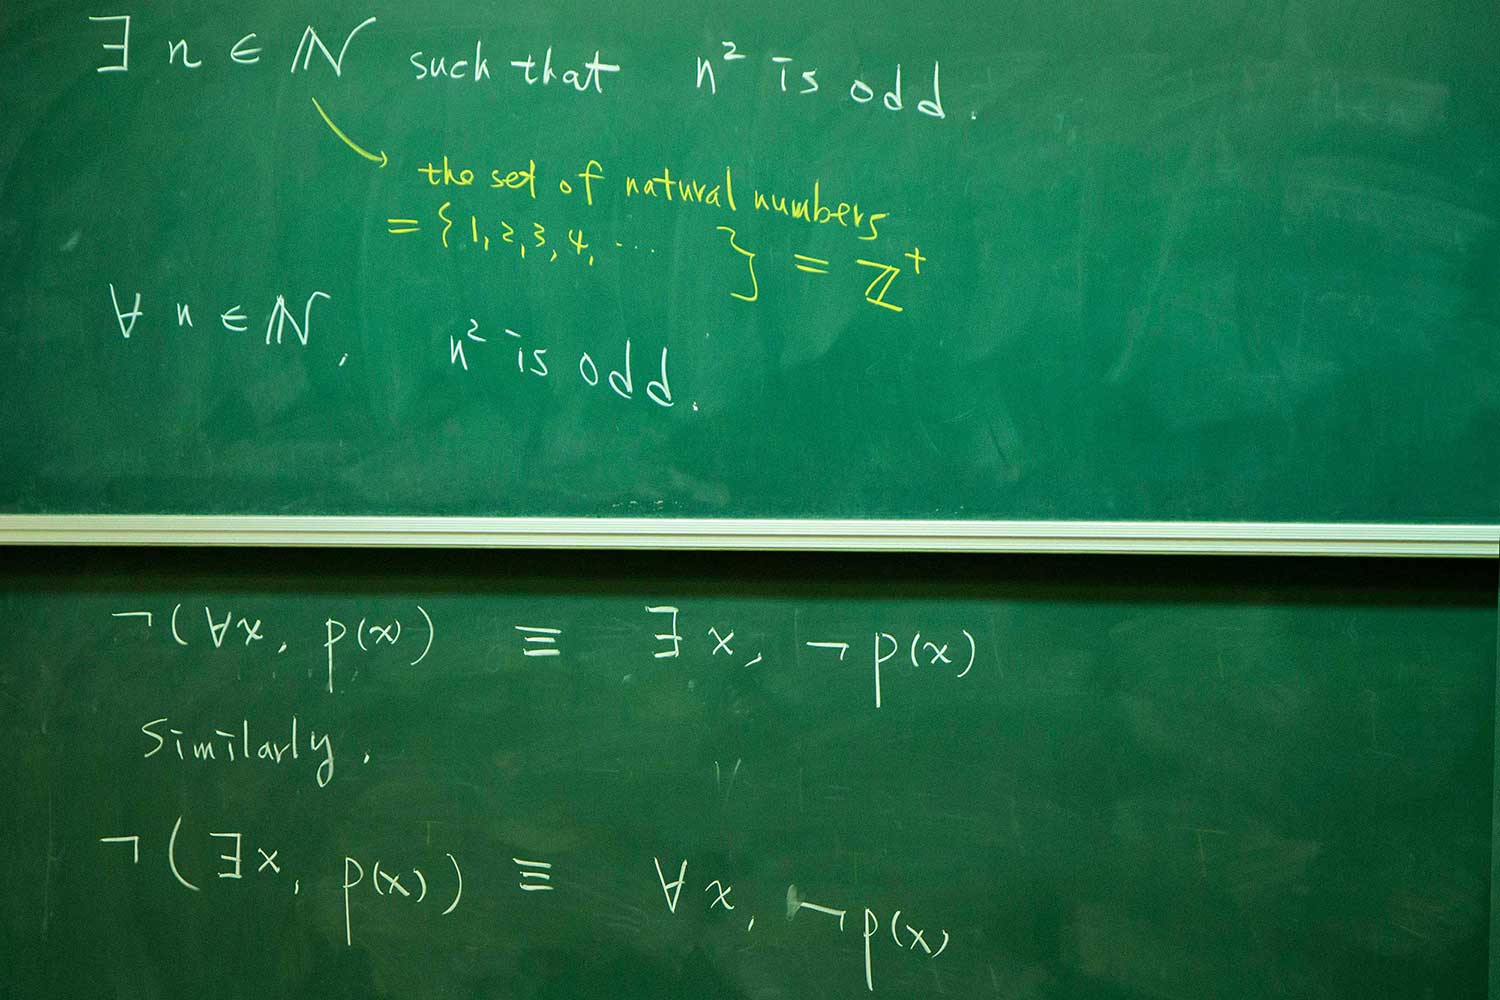 ∃ n ∈ ℕ such that n² is odd.
the set of natural numbers
= {1, 2, 3, 4, ... } = ℤ⁺
∀ n ∈ ℕ, n² is odd.
¬(∀x, p(x)) ≡ ∃x, ¬p(x)
Similarly,
¬(∃x, p(x)) ≡ ∀x, ¬p(x)